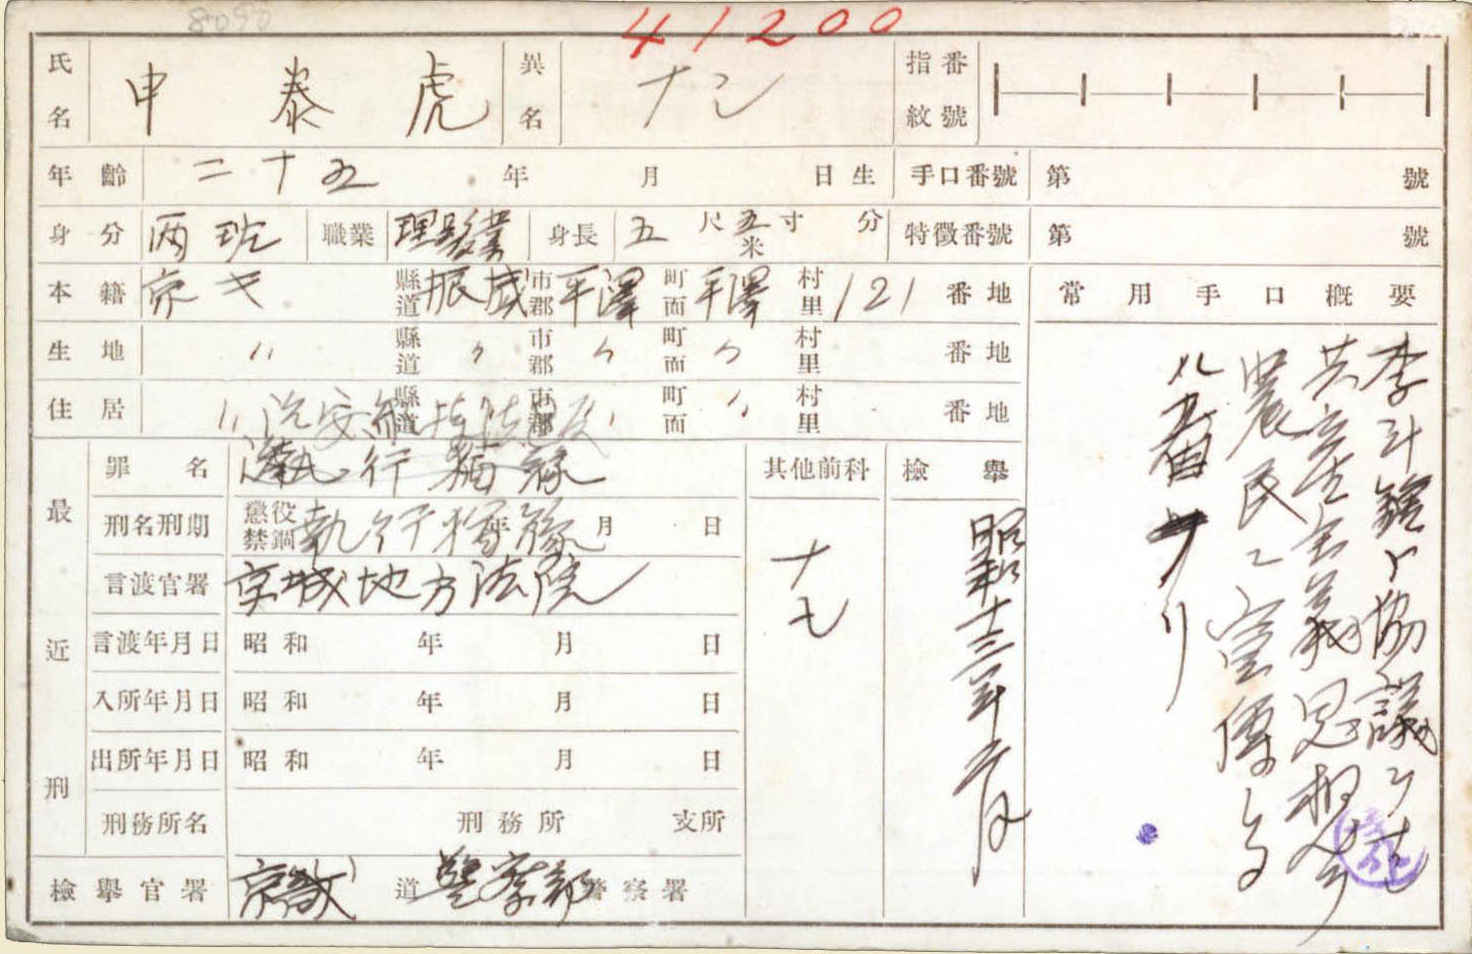 8090
41200
氏名 申泰虎 異名 ナシ 指紋番號
年齡 二十五 年 月 日生 手口番號 第 號
身分 両班 職業 理髮業 身長 五尺五寸 分 米 特徵番號 第 號
本籍 京キ 縣道 振威 市郡 平澤 町面 平澤 村里 121 番地
生地 〃 縣道 〃 市郡 〃 町面 〃 村里 番地
住居 〃 縣道 〃 市郡 〃 町面 〃 村里 番地
治安維持法
最近刑
罪名 執行猶豫
刑名刑期 懲役 禁錮 執行猶豫 年 月 日
言渡官署 京城地方法院
言渡年月日 昭和 年 月 日
入所年月日 昭和 年 月 日
出所年月日 昭和 年 月 日
刑務所名 刑務所 支所
檢擧官署 京畿 道 警察部 警察署
其他前科
ナシ
檢擧
昭和十三年 月
常用手口概要
李斗鎔ト協議シ
共產主義思想
農民ニ宣傳